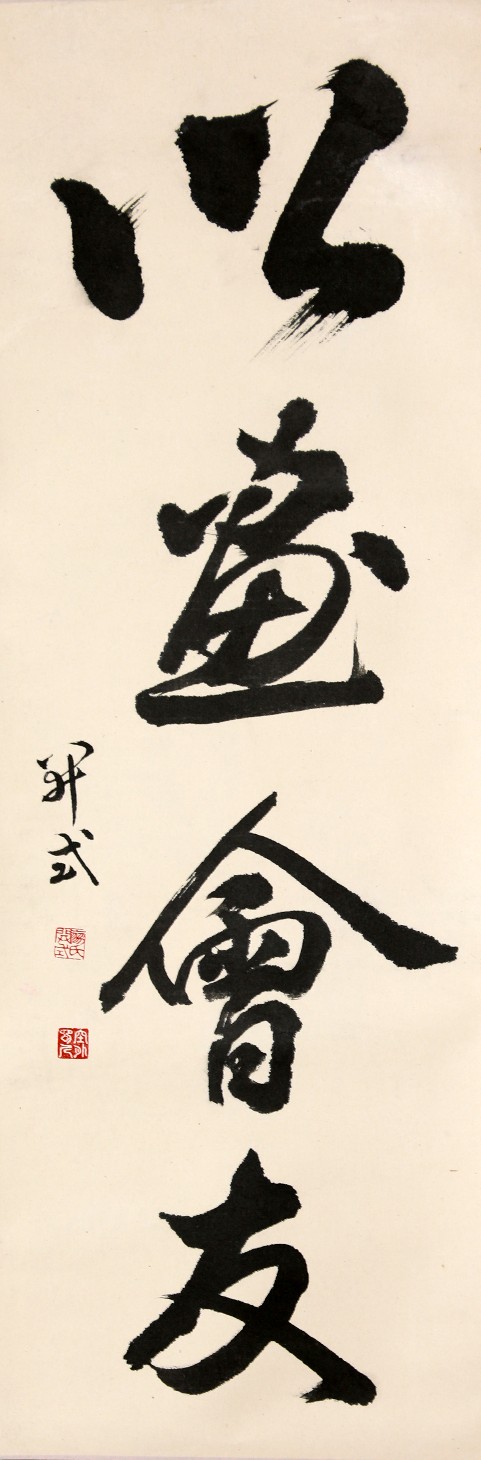 以畫會友
開式